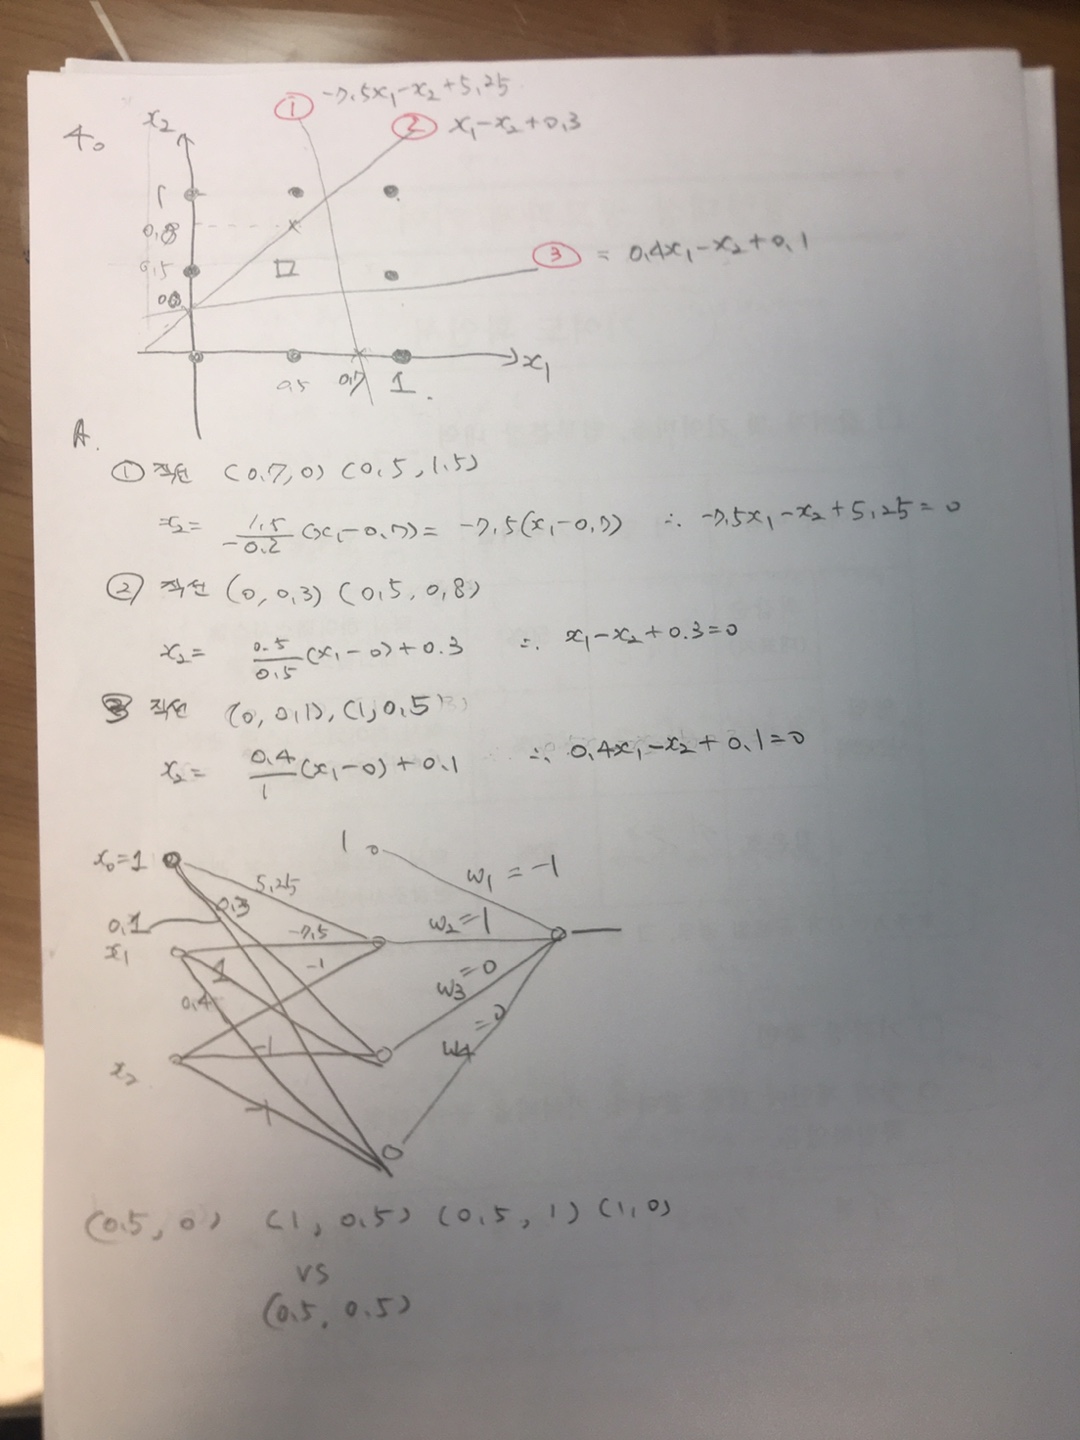 4.
① -7.5x₁-x₂+5.25
② x₁-x₂+0.3
x₂
1
0.8
0.5
③ = 0.4x₁-x₂+0.1
0.5 0.7 1. x₁
A.
① 직선 (0.7, 0) (0.5, 1.5)
x₂= 1.5/-0.2 (x₁-0.7) = -7.5(x₁-0.7) ∴ -7.5x₁-x₂+5.25=0
② 직선 (0, 0.3) (0.5, 0.8)
x₂= 0.5/0.5 (x₁-0)+0.3 ∴ x₁-x₂+0.3=0
③ 직선 (0, 0.1), (1, 0.5)
x₂= 0.4/1 (x₁-0)+0.1 ∴ 0.4x₁-x₂+0.1=0
x₀=1
1
w₁ = -1
5.25
0.3
0.1
w₂=1
-7.5
x₁
1
-1
w₃=0
0.4
w₄=0
-1
x₂
-1
(0.5, 0) (1, 0.5) (0.5, 1) (1, 0)
vs
(0.5, 0.5)